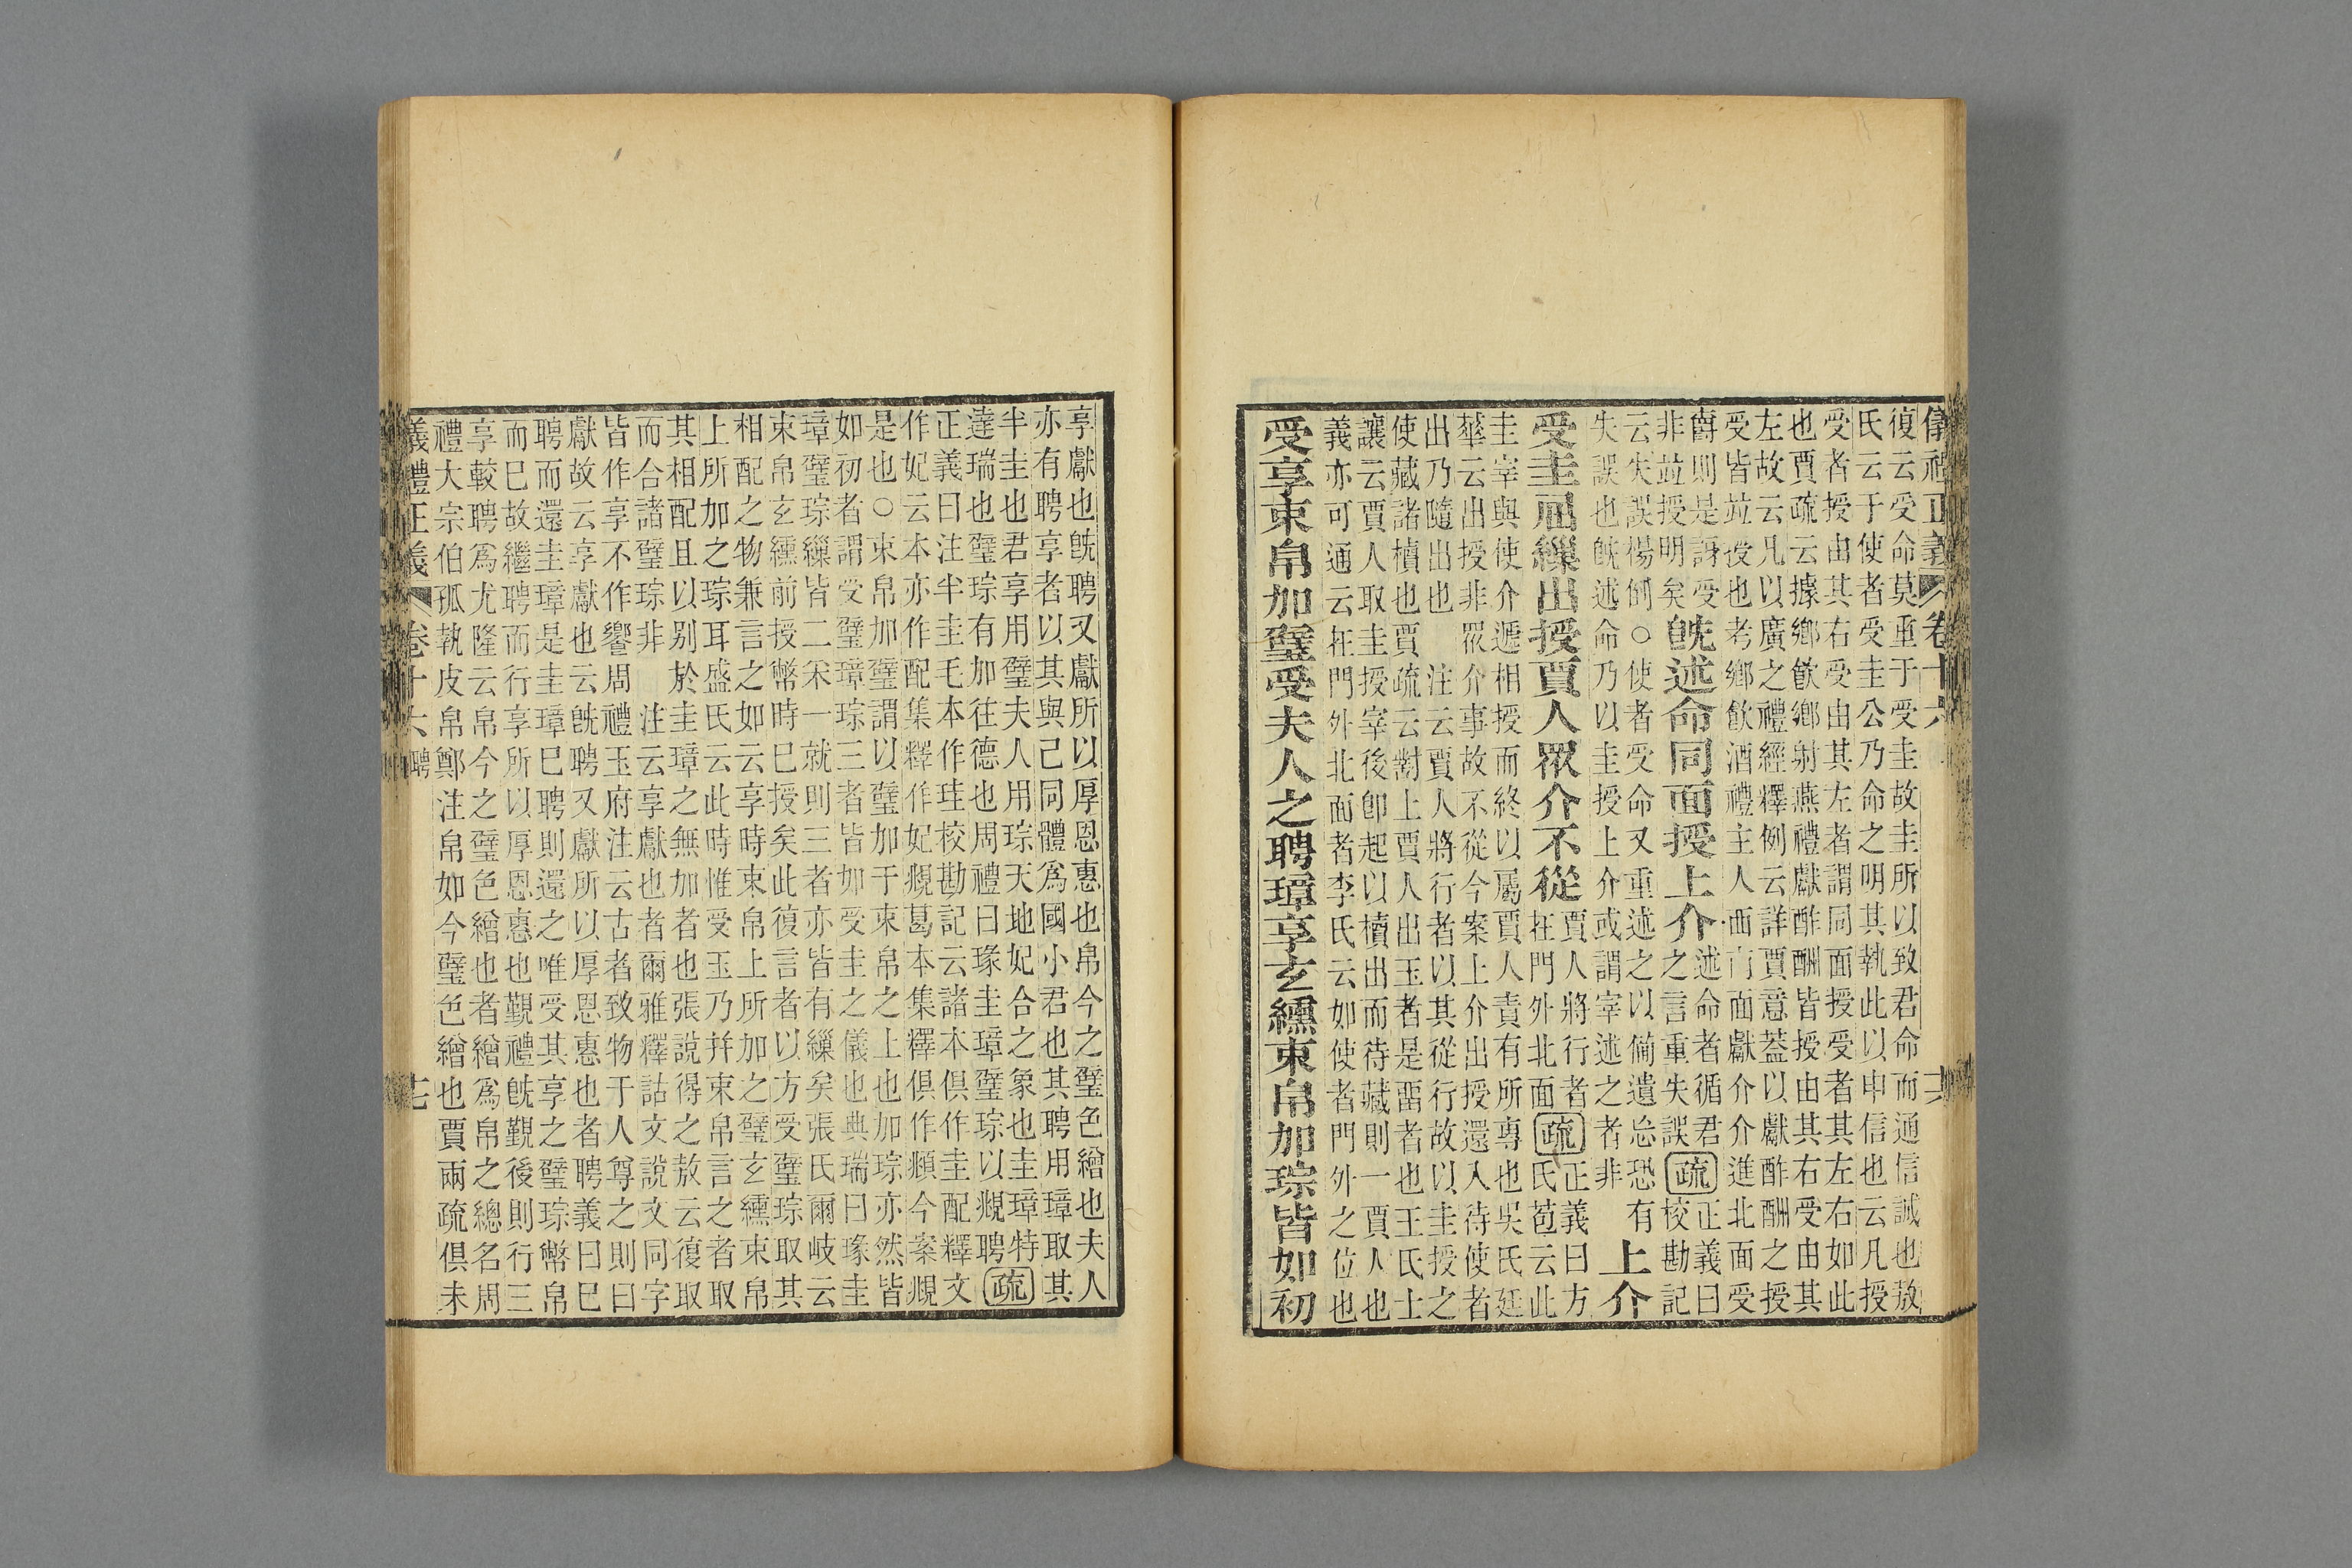 儀禮正義 卷十六
復云受命莫重于受圭故圭所以致君命而通信誠也敖
氏云于使者受圭公乃命之明其執此以申信也云凡授
受者授由其右受由其左者謂同面授受者其左右如此
也賈疏云據鄉飲鄉射燕禮獻酢酬皆授由其右受由其
左故云凡以廣之禮經釋例云詳賈意蓋以獻酢酬之授
受皆竝授也考鄉飲酒禮主人西南面獻介介進北面受
爵則是訝受
非竝授明矣
旣述命同面授上介
述命者循君
之言重失誤
疏
正義曰
校勘記
云失誤楊倒○使者受命又重述之以備遺忘恐有
失誤也旣述命乃以圭授上介或謂宰述之者非
上介
受圭屈繅出授賈人眾介不從
賈人將行者
在門外北面
疏
正義曰方
氏苞云此
圭宰與使介遞相授而終以屬賈人責有所專也吳氏廷
華云出授非眾介事故不從今案上介出授還入待使者
出乃隨出也　注云賈人將行者以其從行故以圭授之
使藏諸櫝也賈疏云對上賈人出玉者是留者也王氏士
讓云賈人取圭授宰後卽起以櫝出而待藏則一賈人也
義亦可通云在門外北面者李氏云如使者門外之位也
受享束帛加璧受夫人之聘璋享玄纁束帛加琮皆如初
享獻也旣聘又獻所以厚恩惠也帛今之璧色繒也夫人
亦有聘享者以其與己同體爲國小君也其聘用璋取其
半圭也君享用璧夫人用琮天地妃合之象也圭璋特
達瑞也璧琮有加往德也周禮曰瑑圭璋璧琮以覜聘
疏
正義曰注半圭毛本作珪校勘記云諸本俱作圭配釋文
作妃云本亦作配集釋作妃覜葛本集釋俱作頫今案覜
是也○束帛加璧謂以璧加于束帛之上也加琮亦然皆
如初者謂受璧璋琮三者皆如受圭之儀也典瑞曰瑑圭
璋璧琮繅皆二采一就則三者亦皆有繅矣張氏爾岐云
束帛玄纁前授幣時已授矣此復言者以方受璧琮取其
相配之物兼言之如云享時束帛上所加之璧玄纁束帛
上所加之琮耳盛氏云此時惟受玉乃幷束帛言之者取
其相配且以別於圭璋之無加者也張說得之敖云復取
而合諸璧琮非　注云享獻也者爾雅釋詁文說文同字
皆作享不作饗周禮玉府注云古者致物于人尊之則曰
獻故云享獻也云旣聘又獻所以厚恩惠也者聘義曰已
聘而還圭璋是圭璋已聘則還之唯受其享之璧琮幣帛
而已故繼聘而行享所以厚恩惠也覲禮旣覲後則行三
享較聘爲尤隆云帛今之璧色繒也者繒爲帛之總名周
禮大宗伯孤執皮帛鄭注帛如今璧色繒也賈兩疏俱未
儀禮正義 卷十六 聘 十七